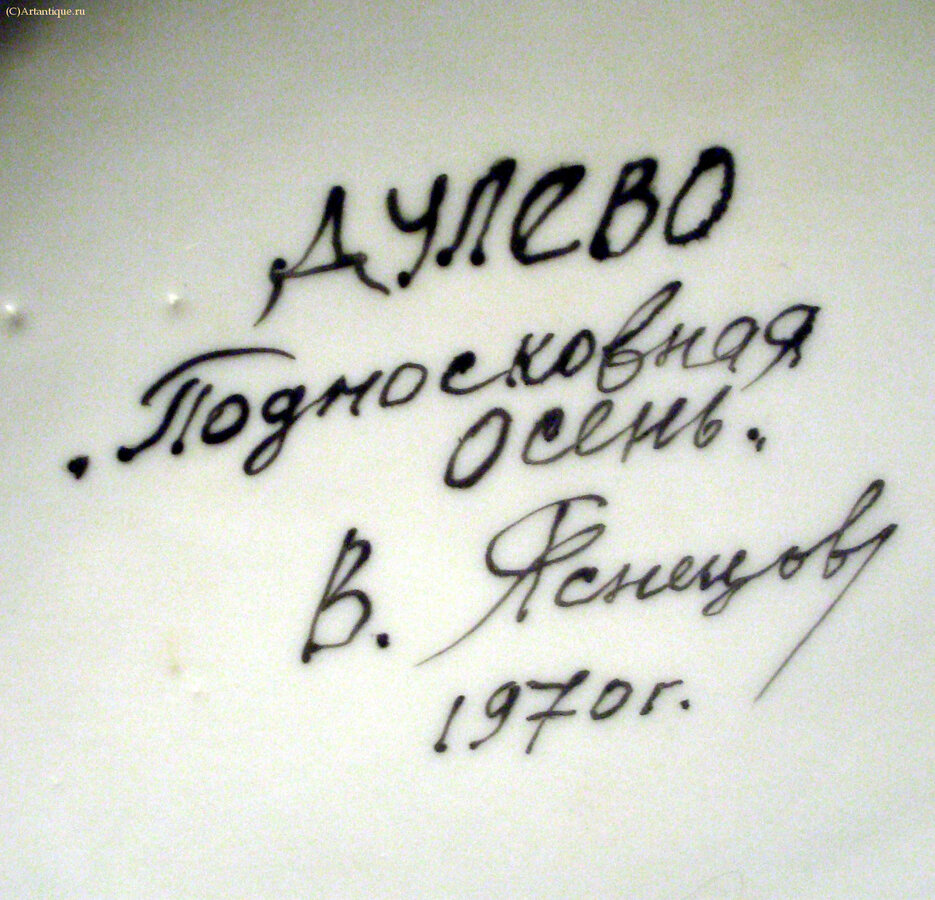 (C)Artantique.ru
ДУЛЕВО
"Подмосковная
осень."
В. Яснецов
1970г.